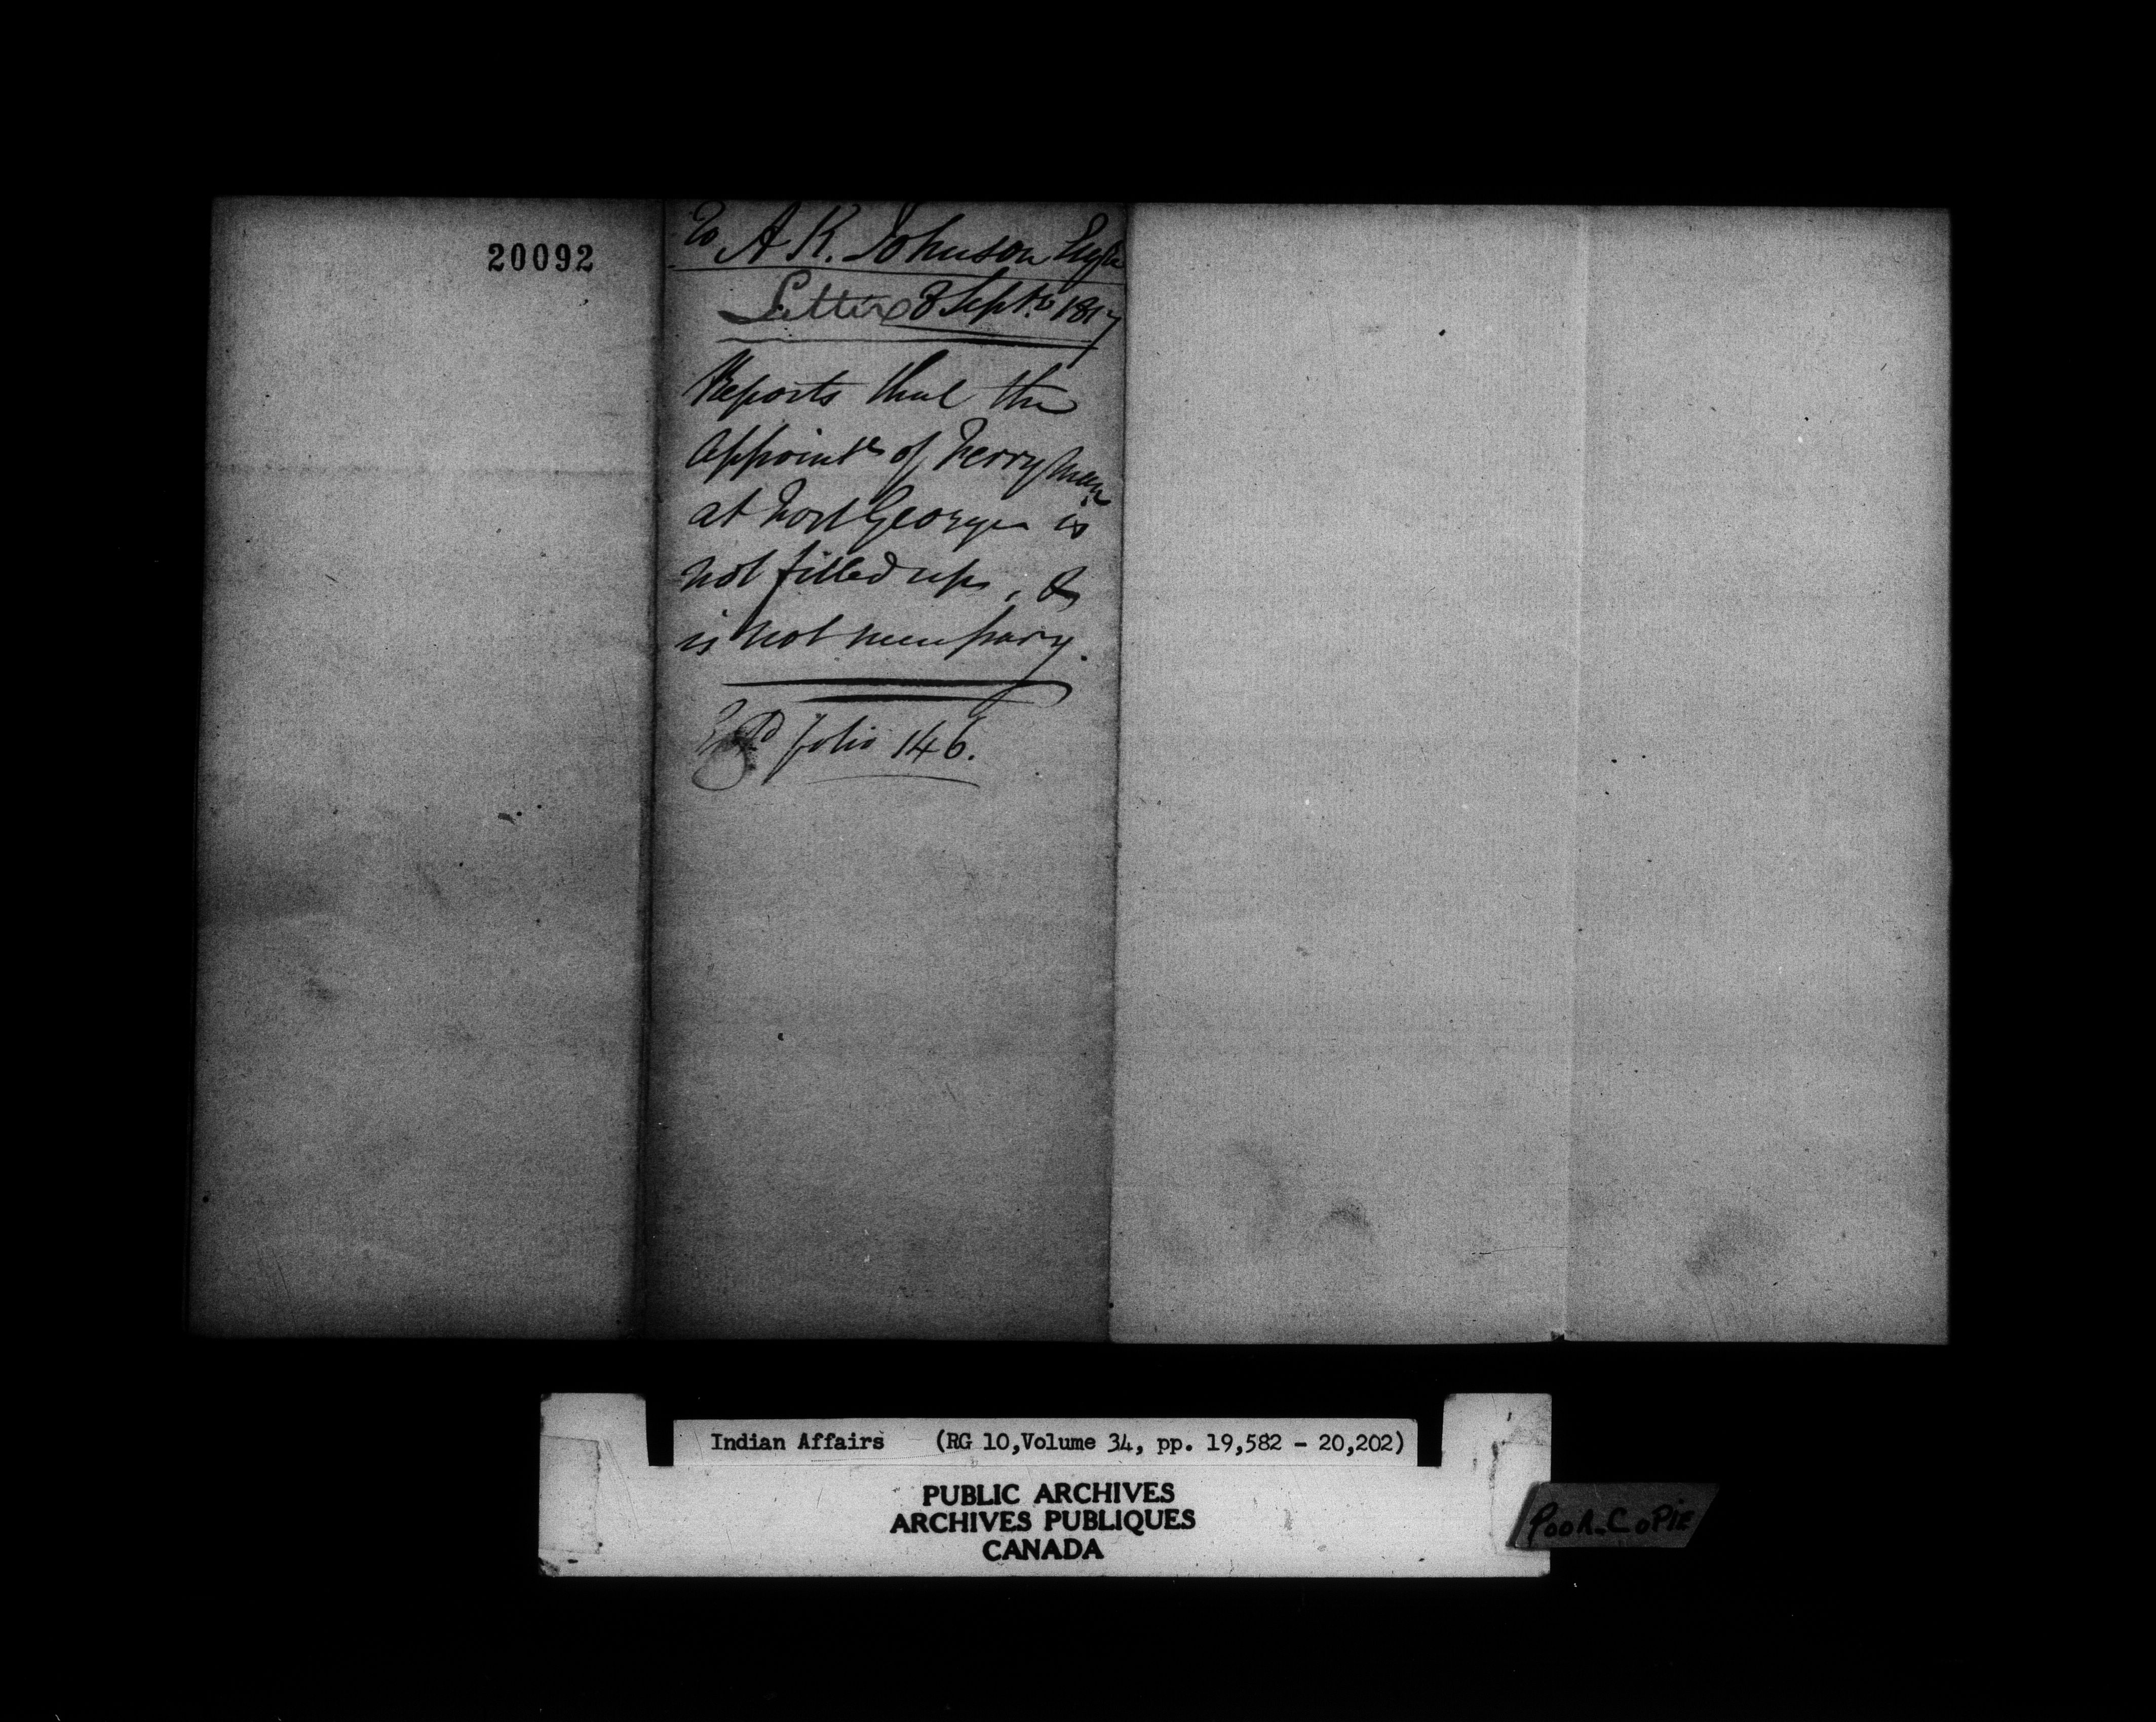 20092
To A K. Johnson
Letter 8 Septr 1817
Reports that the
appointt of Ferryman
at Fort George is
not filled up, &
is not necessary.
folio 146.
Indian Affairs (RG 10,Volume 34, pp. 19,582 - 20,202)
PUBLIC ARCHIVES
ARCHIVES PUBLIQUES
CANADA
POOR COPIE